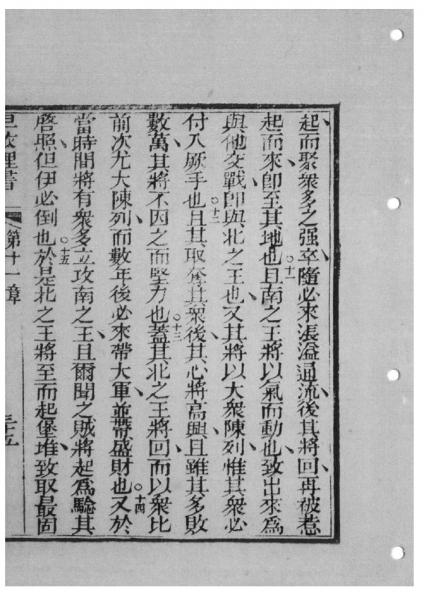 起而聚衆多之强卒隨必來漲溢通流後其將回再破惹
起而來卽至其地也○十一且南之王將以氣而動也致出來爲
與他交戰卽與北之王也又其將以大衆陳列惟其衆必
付入厥手也○十二且其取奪其衆後其心將高興且雖其多敗
數萬其將不因之而堅力也○十三蓋其北之王將回而以衆比
前次尤大陳列而數年後必來帶大軍並帶盛財也○十四又於
當時間將有衆多立攻南之王且爾聞之賊將起爲騐其
啓照但伊必倒也○十五於是北之王將至而起堡堆致取最固
第十一章
三十五